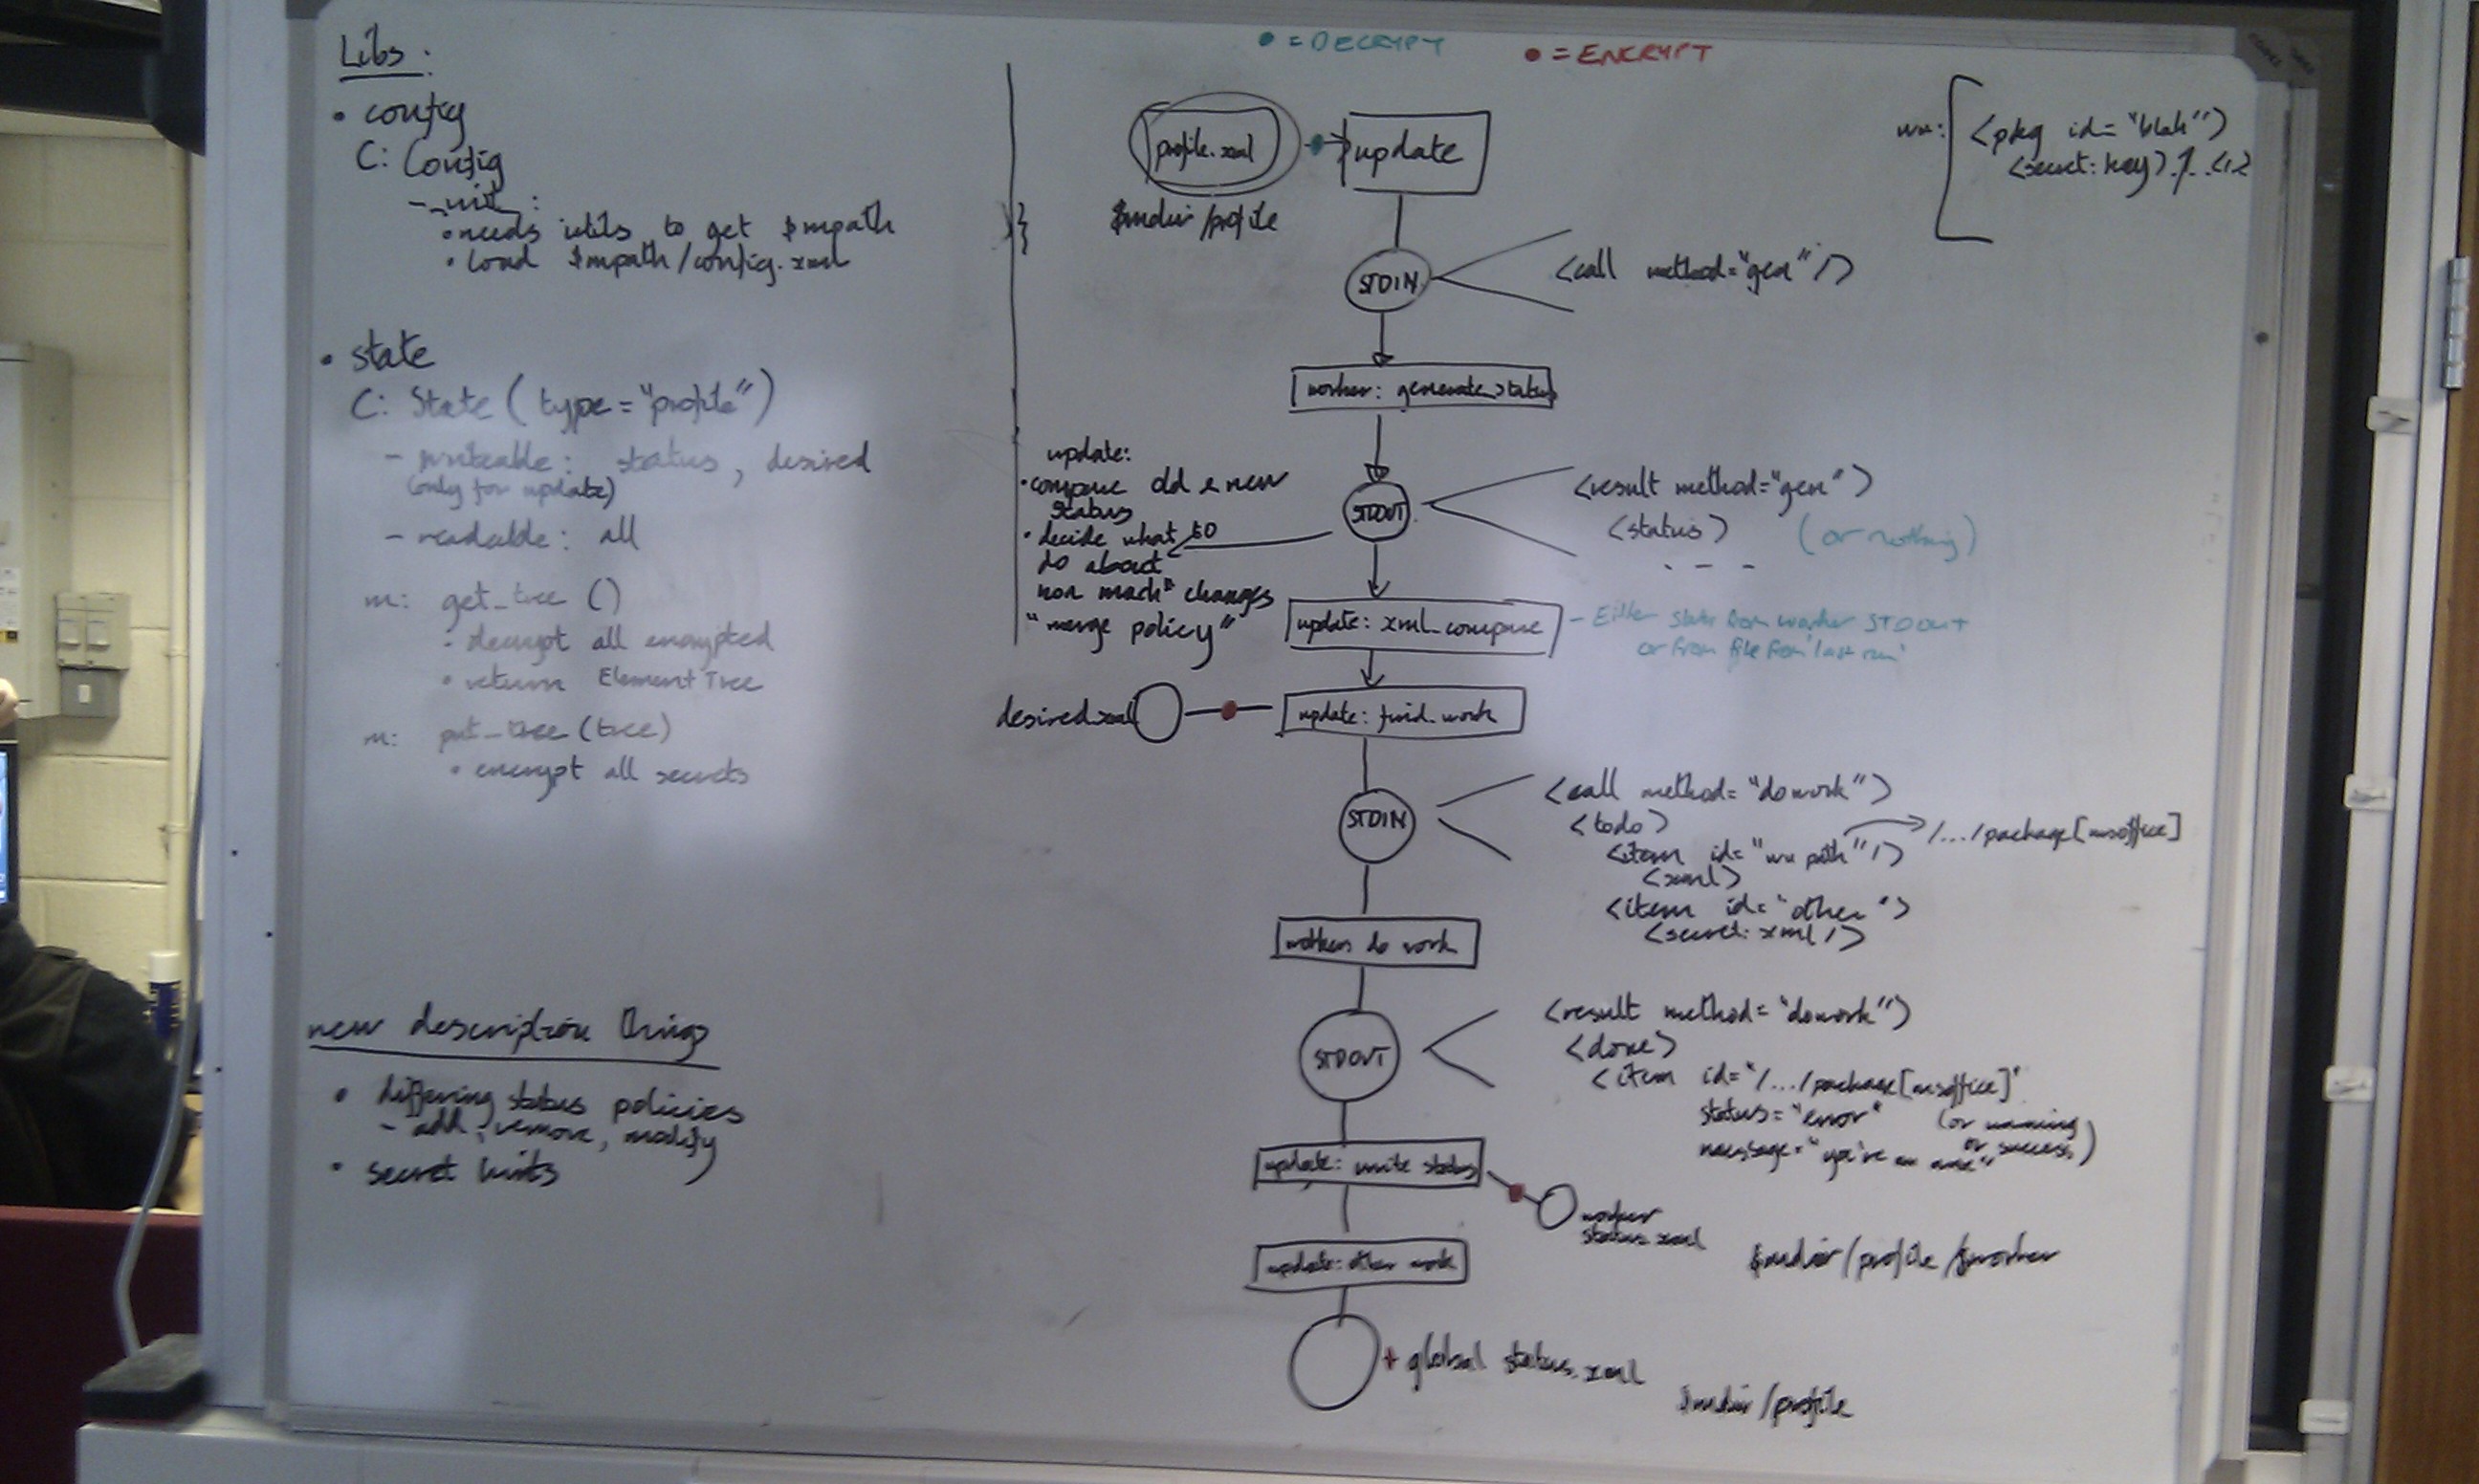 Libs:
• config
C: Config
- __init__:
• needs utils to get $mpath
• load $mpath/config.xml
• state
C: State (type="profile")
- writeable: status, desired
(only for update)
- readable: all
m: get_tree ()
• decrypt all encrypted
• return ElementTree
m: put_tree (tree)
• encrypt all secrets
new description things
• differing status policies
- add, remove, modify
• secret
• = DECRYPT
• = ENCRYPT
profile.xml
update
$mdir/profile
STDIN
<call method="gen"/>
worker: generate_status
STDOUT
<result method="gen">
<status>
(or nothing)
- - -
update:
• compare old & new
status
• decide what to
do about
non mach changes
"merge policy"
update: xml_compare
- Either state from worker STDOUT
or from file from 'last run'
desired.xml
update: find_work
STDIN
<call method="dowork">
<todo>
<item id="wu path"/>
/.../package[msoffice]
<xml>
<item id="other">
<secret:xml/>
worker: do work
STDOUT
<result method="dowork">
<done>
<item id="/.../package[msoffice]"
status="error" (or warning
or success)
message="you're an
update: write status
worker
status.xml
$mdir/profile/$worker
update: other work
+ global status.xml
$mdir/profile
wu:
<pkg id="blah">
<secret:key>